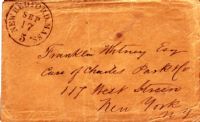 NEW BEDFORD MASS
SEP
17
5
Franklin Whitney Esq
Care of Charles Park & Co
117 West Street
New York
N.Y.